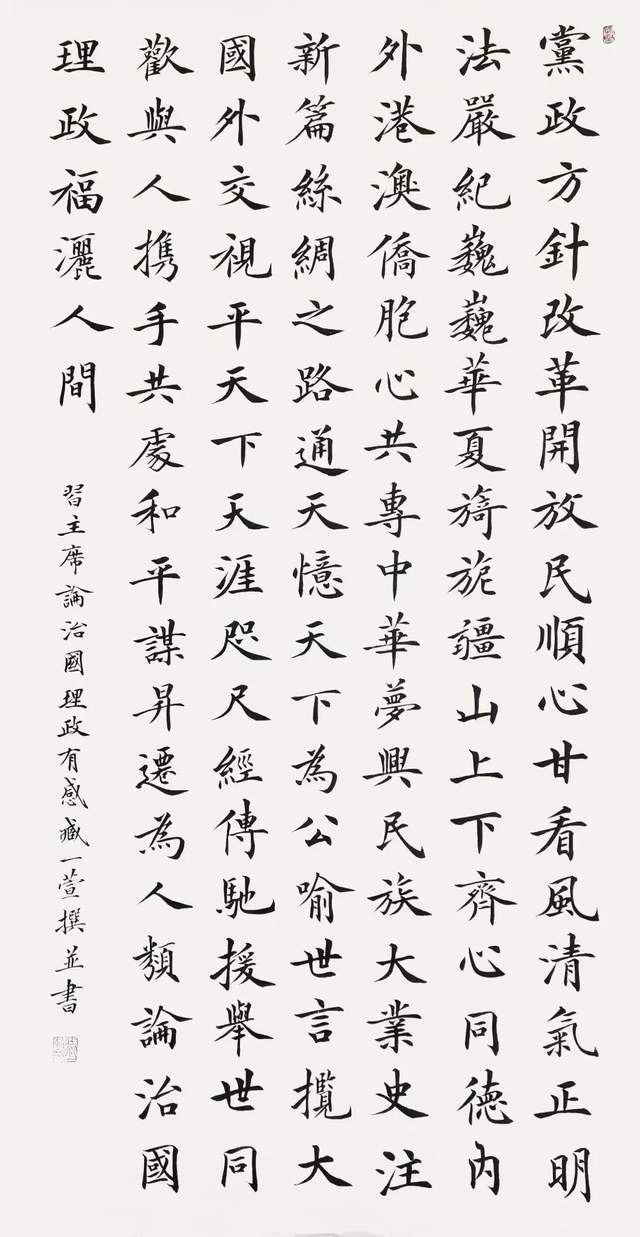 黨政方針改革開放民順心甘看風清氣正明
法嚴紀巍巍華夏旖旎疆山上下齊心同德內
外港澳僑胞心共專中華夢興民族大業史注
新篇絲綢之路通天憶天下為公喻世言攬大
國外交視平天下天涯咫尺經傳馳援舉世同
歡與人携手共處和平謀昇遷為人類論治國
理政福灑人間
習主席論治國理政有感臧一萱撰並書